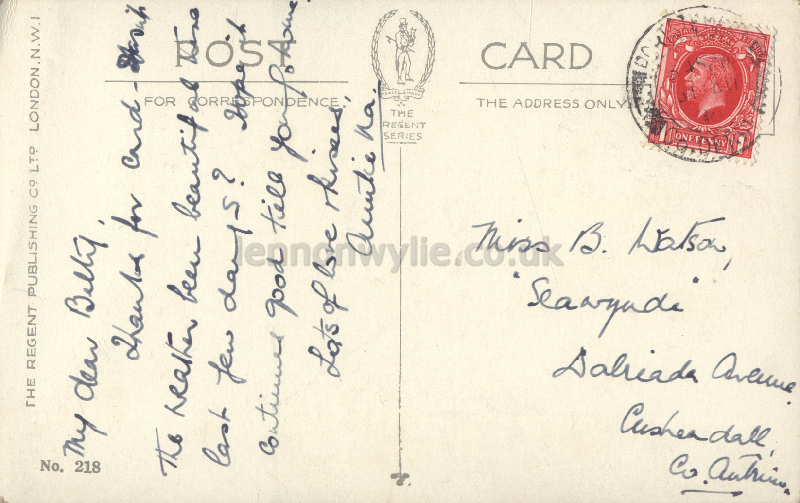 POST CARD
FOR CORRESPONDENCE
THE ADDRESS ONLY
THE
REGENT
SERIES
THE REGENT PUBLISHING CO LTD LONDON. N.W.1
No. 218
My dear Betty,
Thanks for card -
The weather been beautiful here
last few days? Hope it
continues good till you home
Lots of love & kisses,
Auntie Na.
Miss B. Watson,
"Seawynde"
Dalriada Avenue
Cushendall,
Co. Antrim.
ONE PENNY
lennonwylie.co.uk